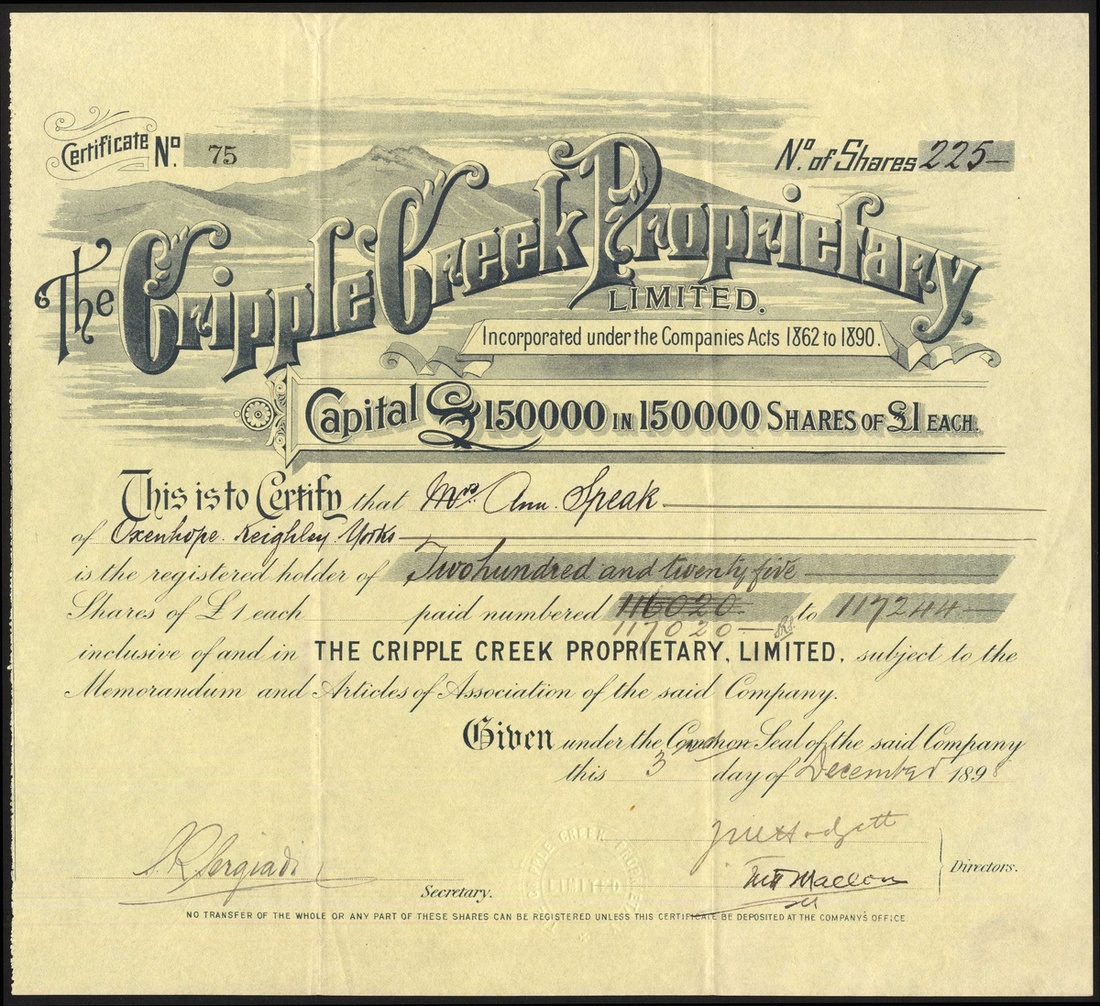 Certificate No. 75
No. of Shares 225—
The Cripple Creek Proprietary,
LIMITED.
Incorporated under the Companies Acts 1862 to 1890.
Capital £150000 IN 150000 SHARES OF £1 EACH.
This is to Certify that Mrs. Ann Speak
of Oxenhope. Keighley Yorks
is the registered holder of Two hundred and twenty five
Shares of £1 each paid numbered 116020 to 117244—
117020—
inclusive of and in THE CRIPPLE CREEK PROPRIETARY, LIMITED, subject to the
Memorandum and Articles of Association of the said Company.
Given under the Common Seal of the said Company
this 3rd day of December 1898
Directors.
Secretary.
LIMITED
NO TRANSFER OF THE WHOLE OR ANY PART OF THESE SHARES CAN BE REGISTERED UNLESS THIS CERTIFICATE BE DEPOSITED AT THE COMPANY'S OFFICE